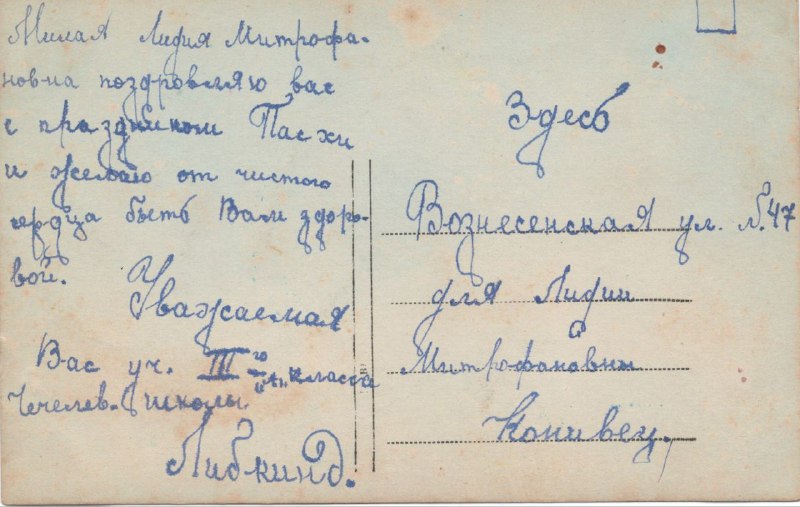 Милая Лидия Митрофа-
новна поздровляю вас
с праздником Пасхи
и желаю от чистого
сердца быть Вам здоро-
вой.
Уважаемая
Вас уч. III го "А" класса
Чечелев. школы
Либкинд.
Здесь
Вознесенская ул. N. 47
для Лидии
Митрофановны
Конивец.